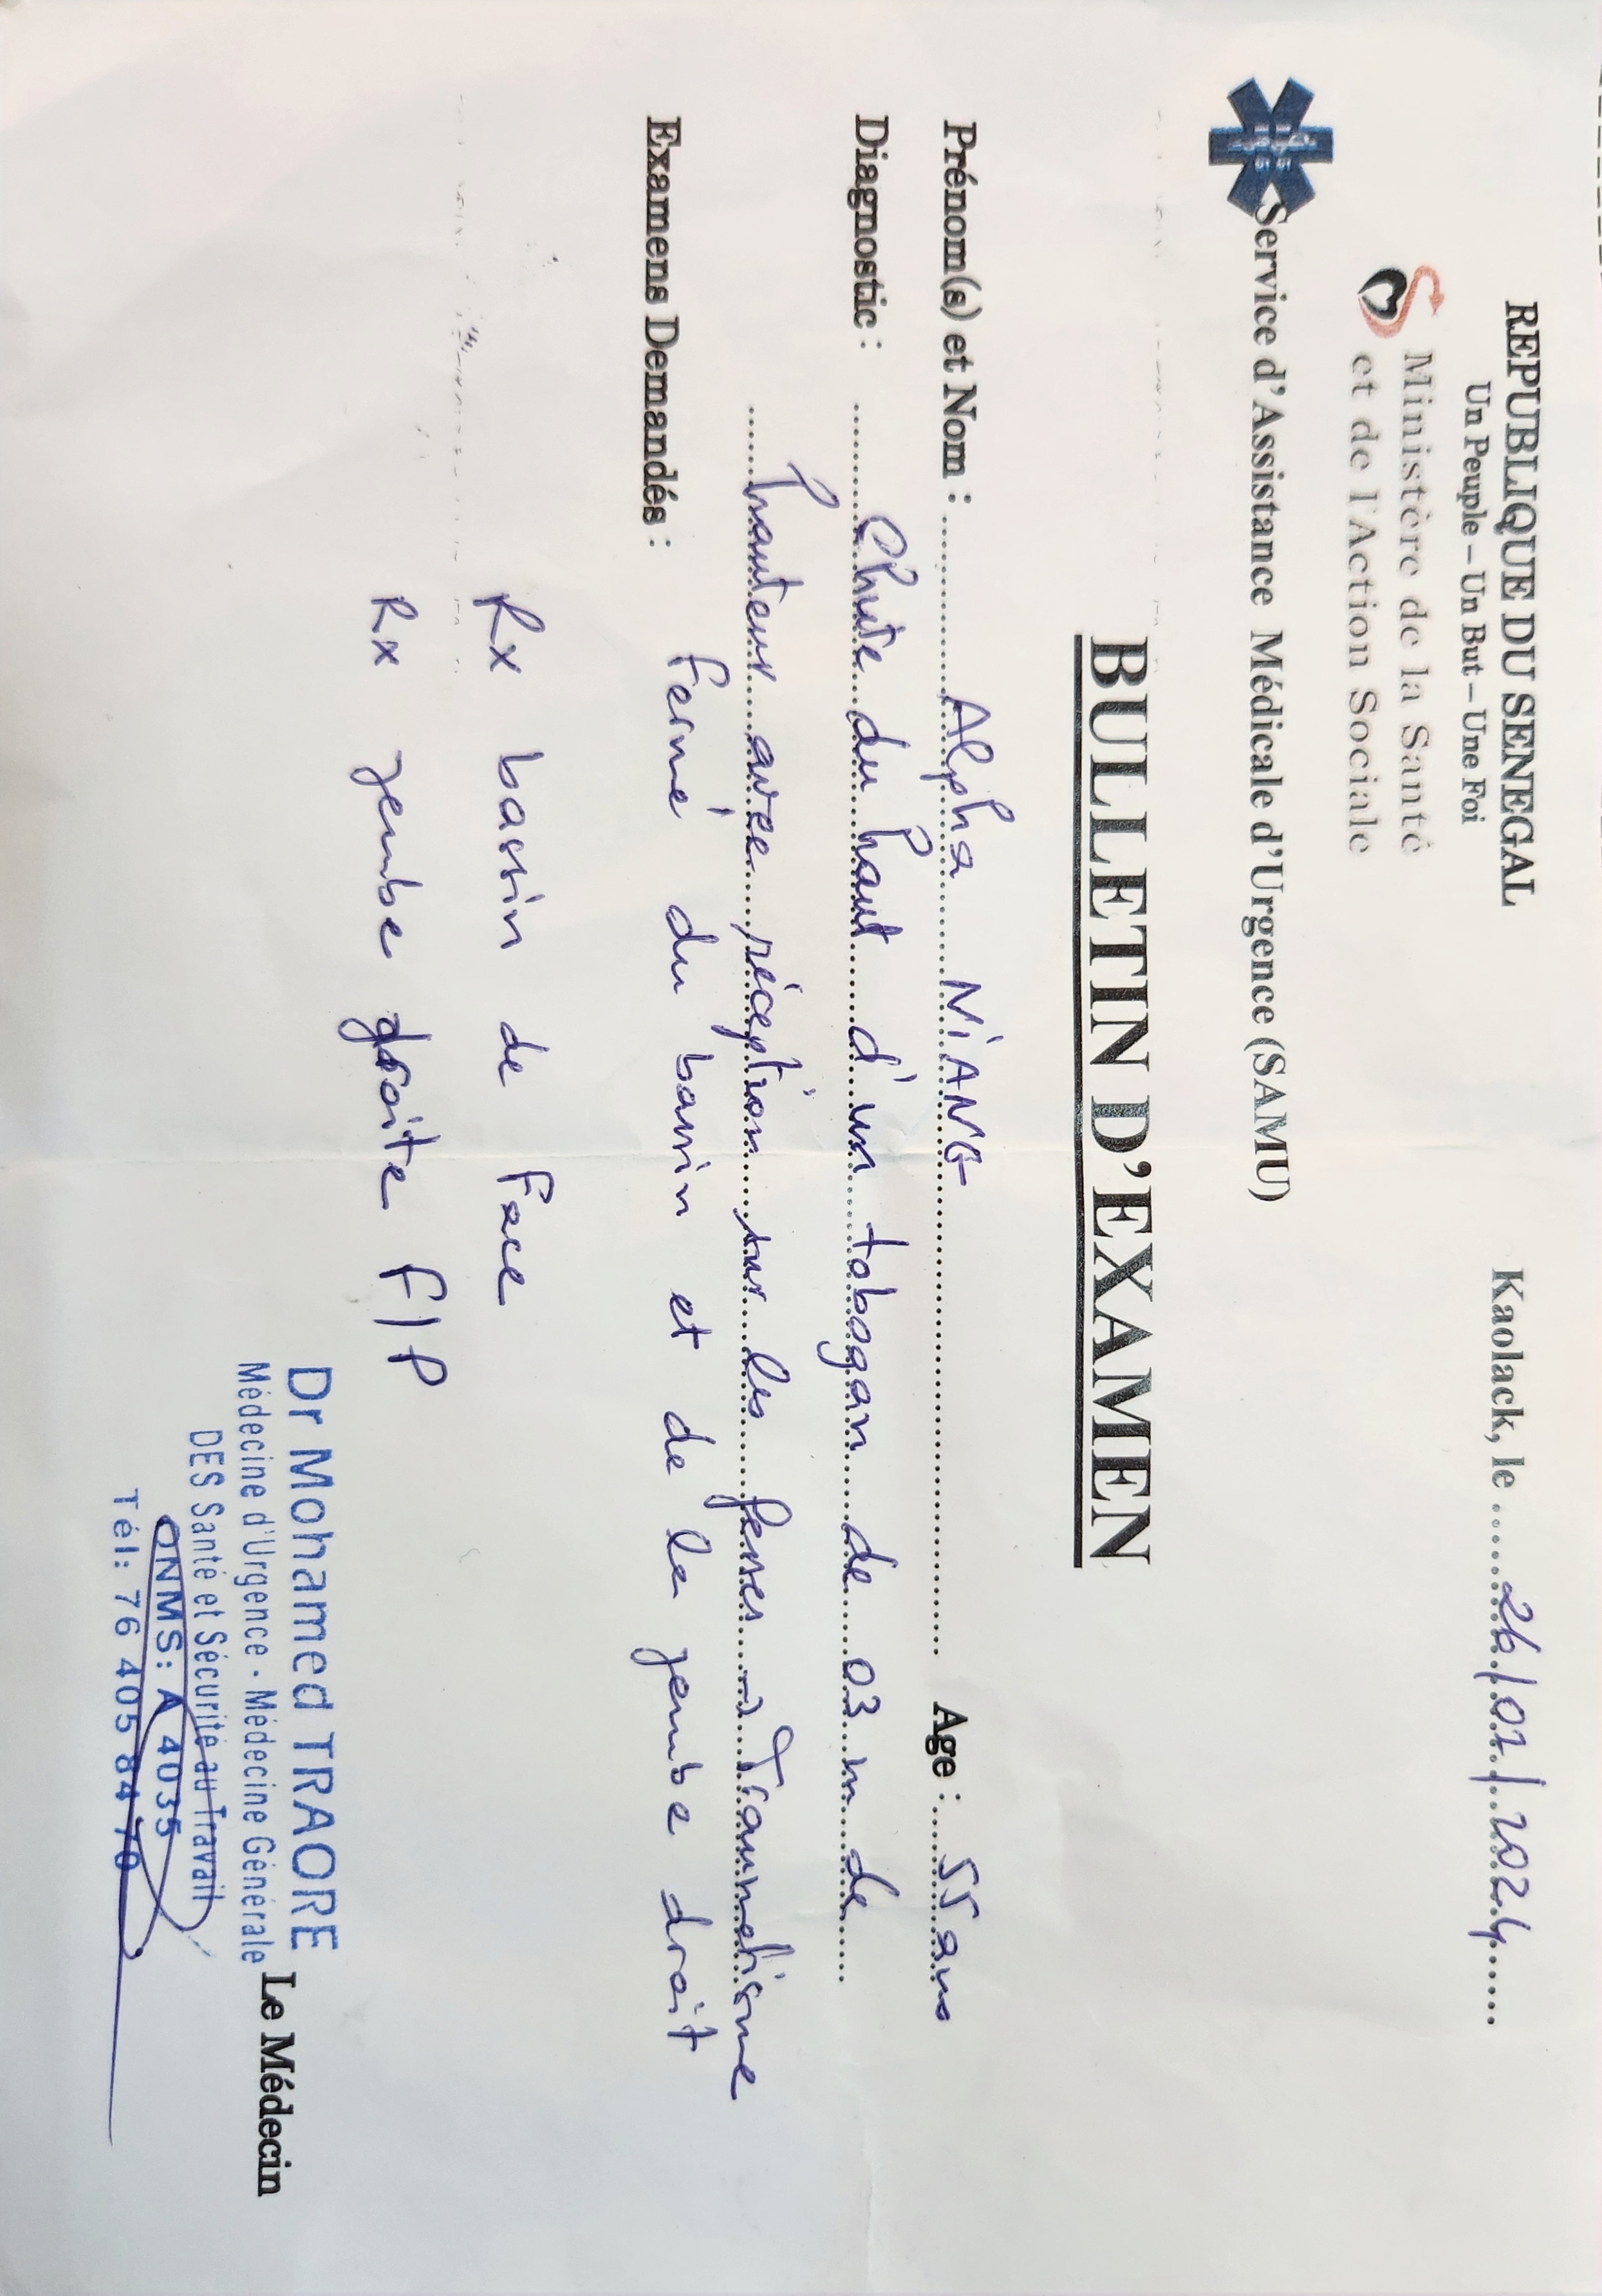 REPUBLIQUE DU SENEGAL
Un Peuple – Un But – Une Foi
Kaolack, le ......26/01/2024......
Ministère de la Santé
et de l'Action Sociale
Service d'Assistance Médicale d'Urgence (SAMU)
BULLETIN D'EXAMEN
Prénom(s) et Nom : Alpha NiANG Age : 55 ans
Diagnostic : Chute du haut d'un tobogan de 03 m de
hauteur avec réception sur les fesses → Traumatisme
fermé du bassin et de la jambe droit
Examens Demandés :
Rx bassin de face
Rx jambe droite F/P
Le Médecin
Dr Mohamed TRAORE
Médecine d'Urgence - Médecine Générale
DES Santé et Sécurité au Travail
ONMS: A 4035
Tél: 76 405 84 70